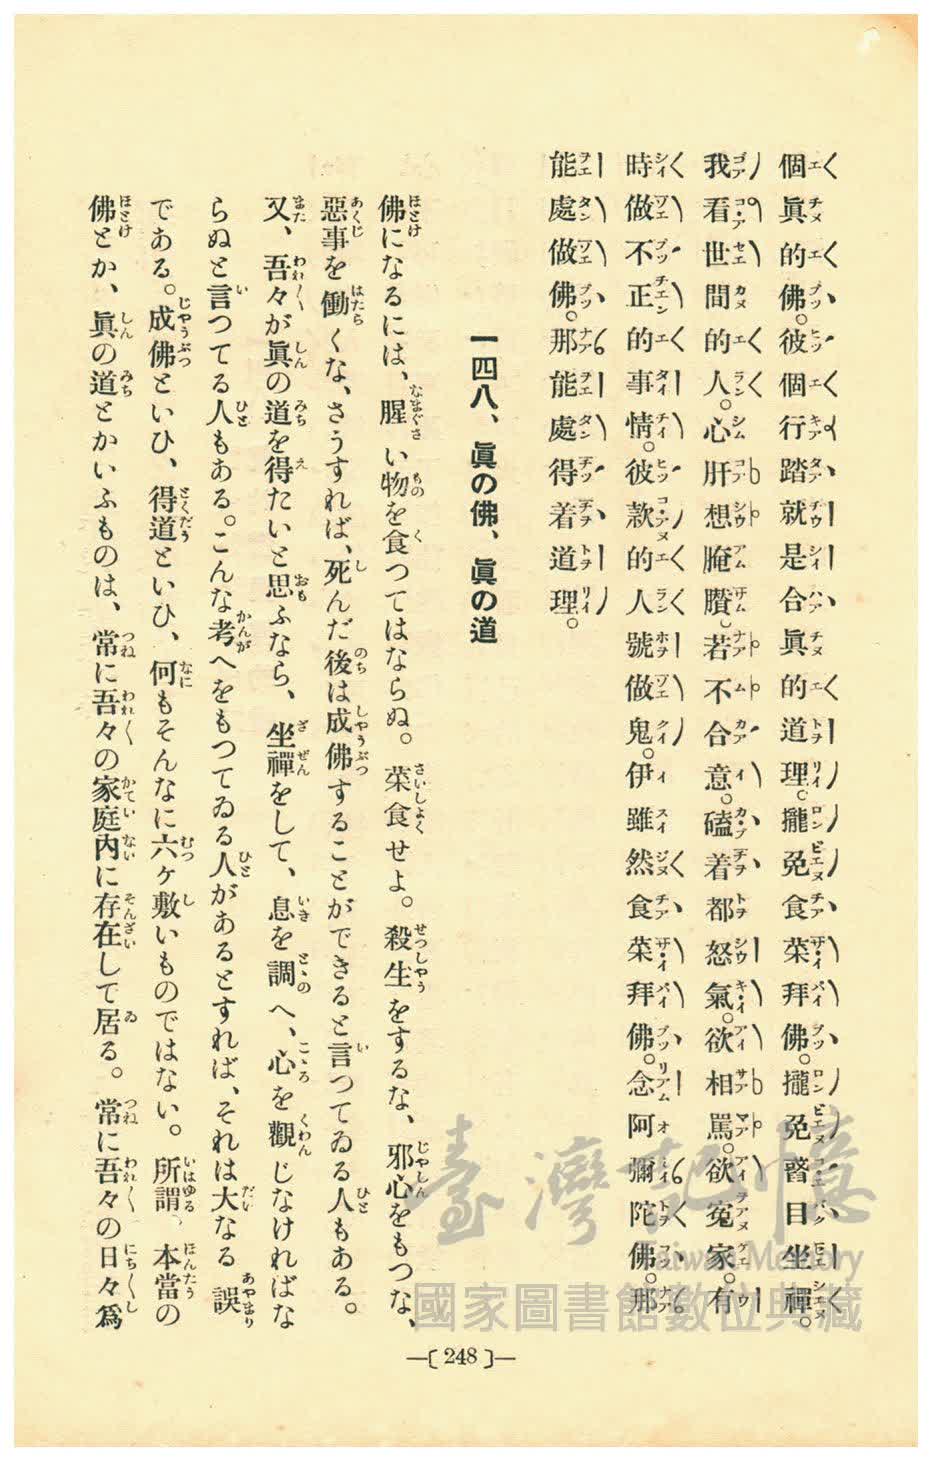 個眞的佛。彼個行踏就是合眞的道理。攏免食菜拜佛。攏免瞌目坐禪。
我看世間的人。心肝想腌臢。若不合意。磕着都怒氣。欲相罵。欲寃家。有
時做不正的事情。彼款的人號做鬼。伊雖然食菜拜佛。念阿彌陀佛。那
能處做佛。那能處得着道理。
一四八、眞の佛、眞の道
佛になるには、腥い物を食つてはならぬ。菜食せよ。殺生をするな、邪心をもつな、
惡事を働くな、さうすれば、死んだ後は成佛することができると言つてゐる人もある。
又、吾々が眞の道を得たいと思ふなら、坐禪をして、息を調へ、心を觀じなければな
らぬと言つてる人もある。こんな考へをもつてゐる人があるとすれば、それは大なる誤
である。成佛といひ、得道といひ、何もそんなに六ケ敷いものではない。所謂、本當の
佛とか、眞の道とかいふものは、常に吾々の家庭內に存在して居る。常に吾々の日々爲
—〔248〕—
臺灣記憶
Taiwan Memory
國家圖書館數位典藏